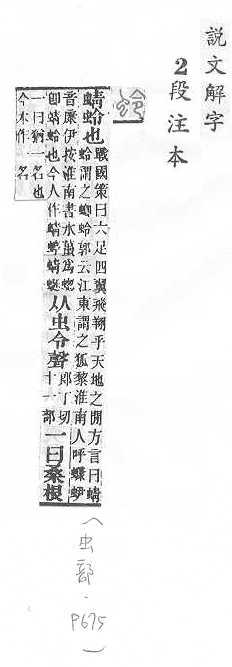 說文解字
2段注本
蛉
蜻蛉也戰國策曰六足四翼飛翔乎天地之閒方言曰蜻
蛉謂之蝍蛉郭云江東謂之狐黎淮南人呼䗧蛜
音康伊按淮南書水蠆爲蟌
卽蜻蛉也今人作蜻蜓蜻蜒
从虫令聲郎丁切
十一部
一曰桑根
一曰猶一名也
今本作一名
(虫部.P675)